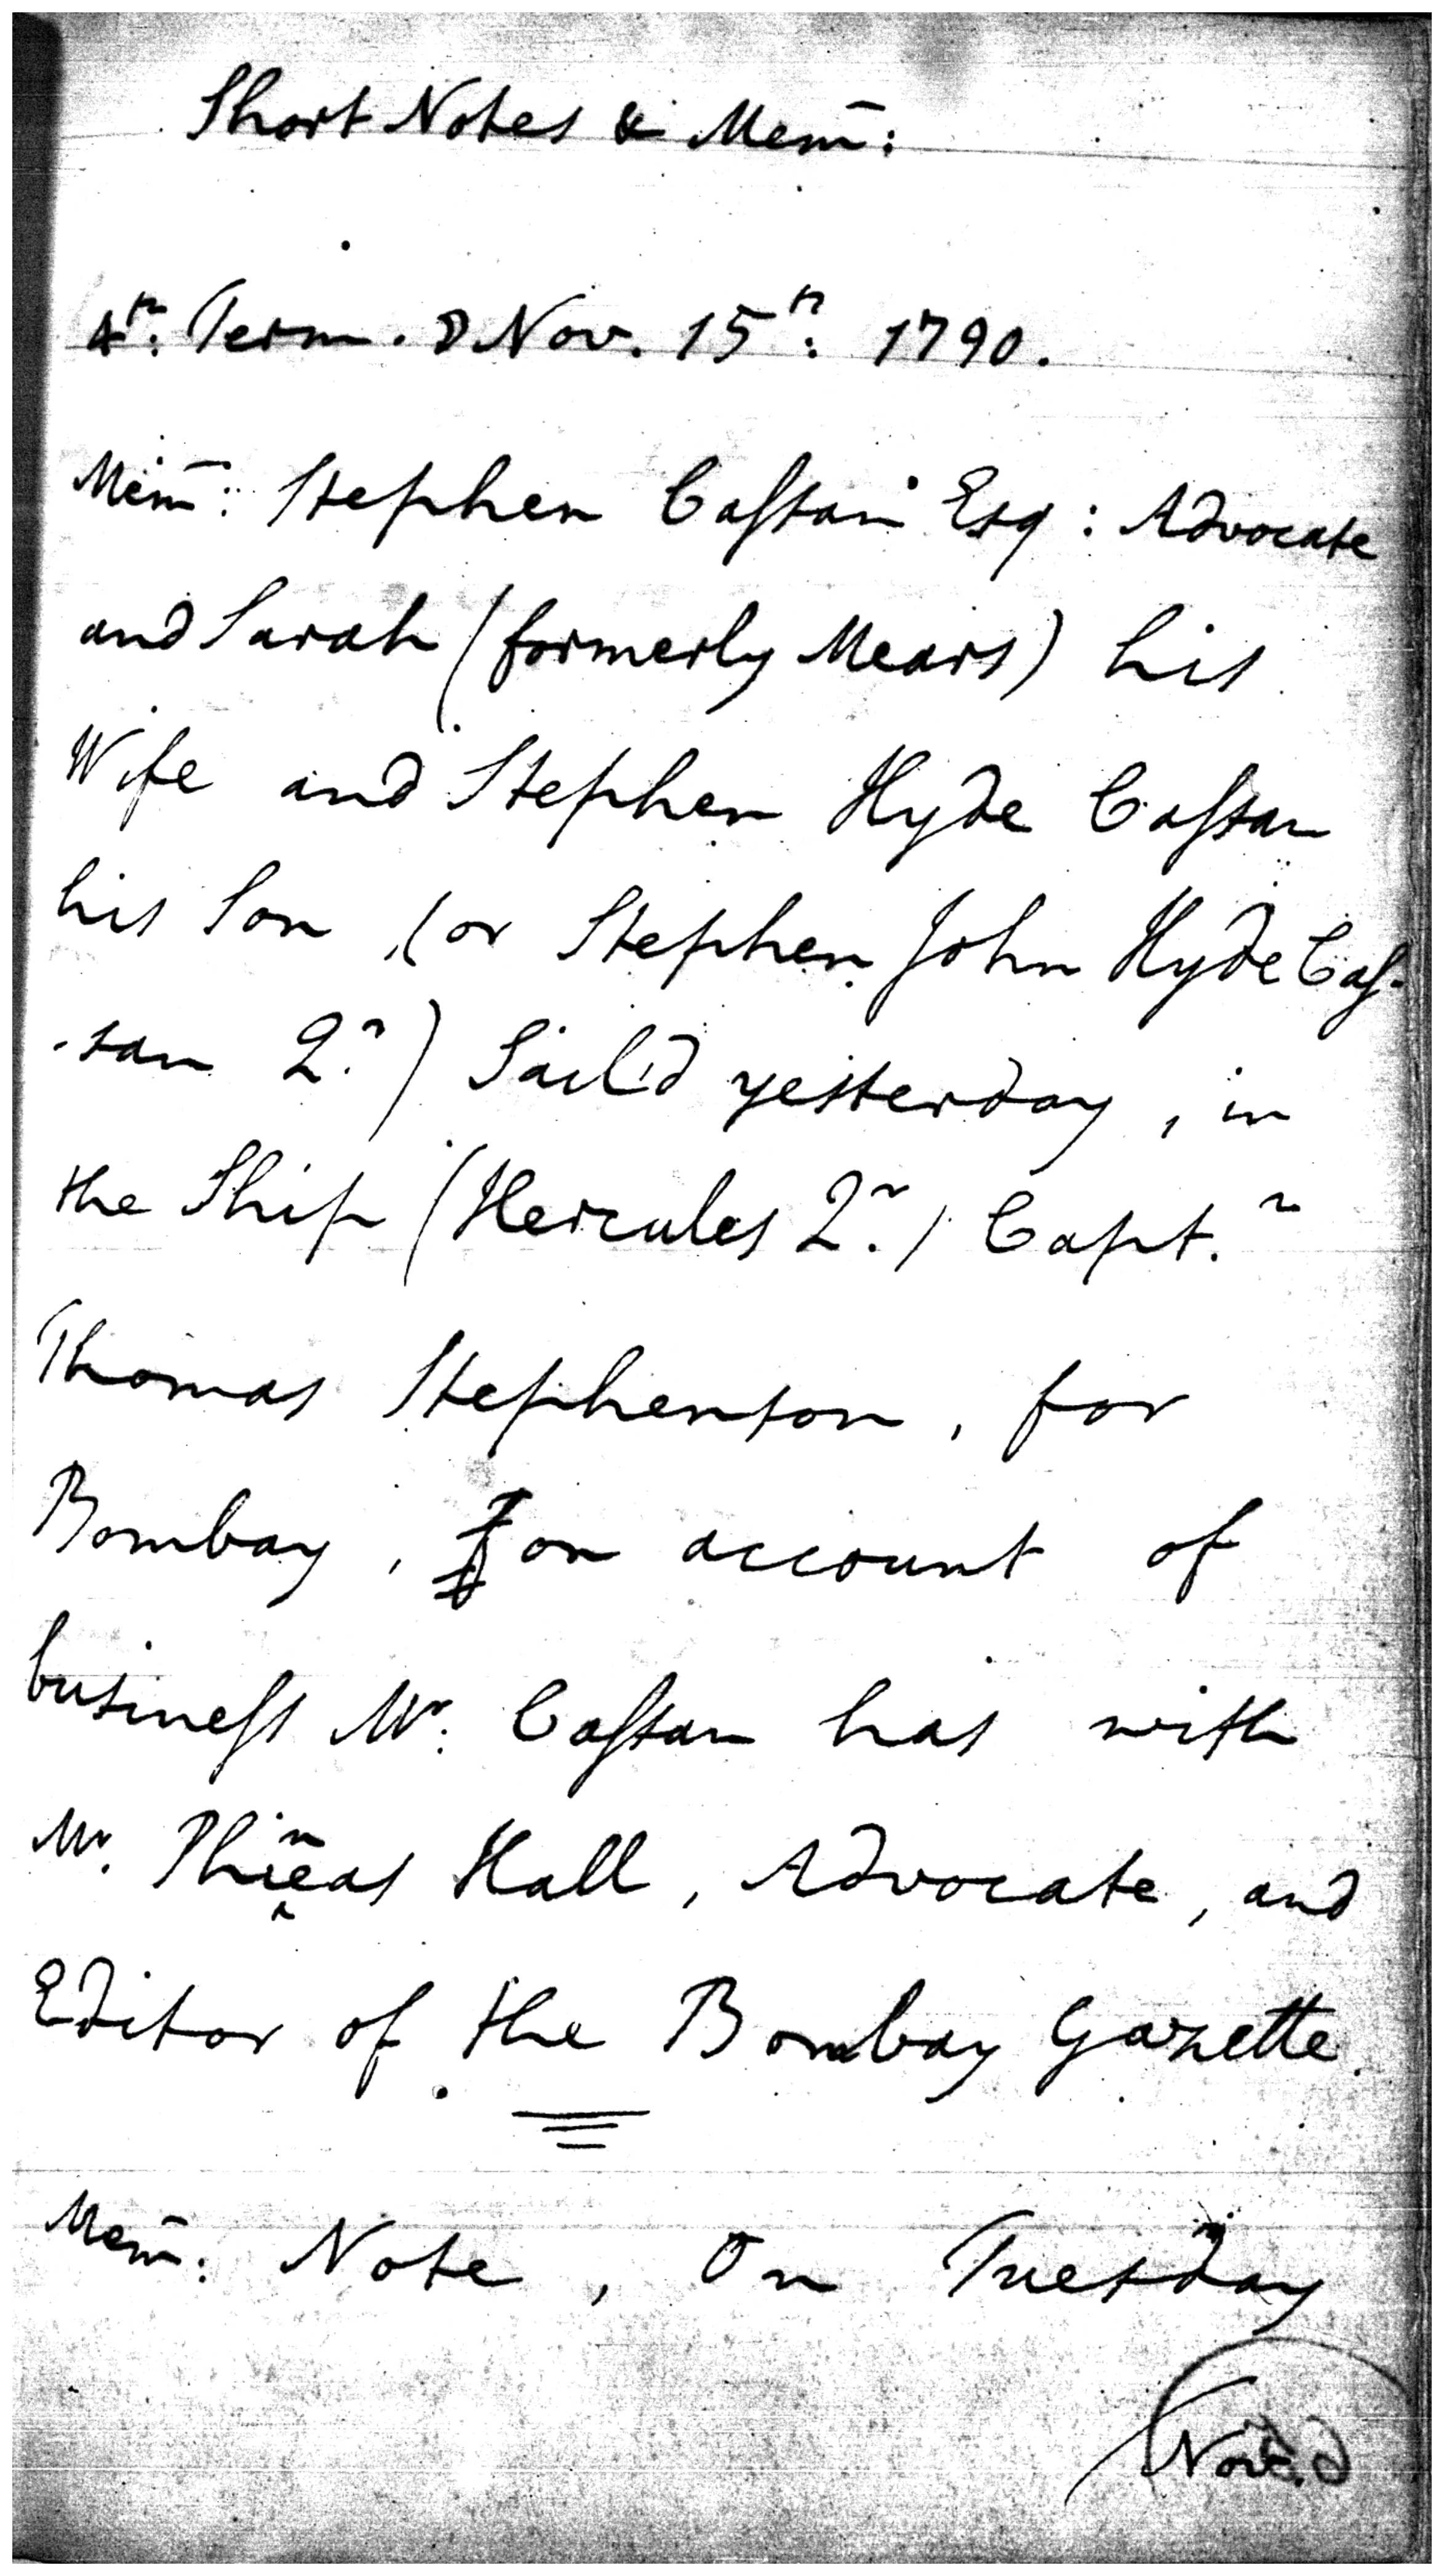 Short Notes & Mem̄:
4th: Term. D Nov. 15th: 1790.
Mem̄: Stephen Caſsan Esq: Advocate
and Sarah (formerly Mears) his
Wife and Stephen Hyde Caſsan
his Son, (or Stephen John Hyde Caſ-
-san Q?) Sail'd yesterday, in
the Ship (Hercules Q?) Capt.n
Thomas Stephenson, for
Bombay, on account of
busineſs Mr. Caſsan has with
Mr. Phineas Hall, Advocate, and
Editor of the Bombay Gazette.
Mem̄: Note, On Tuesday
Nov.